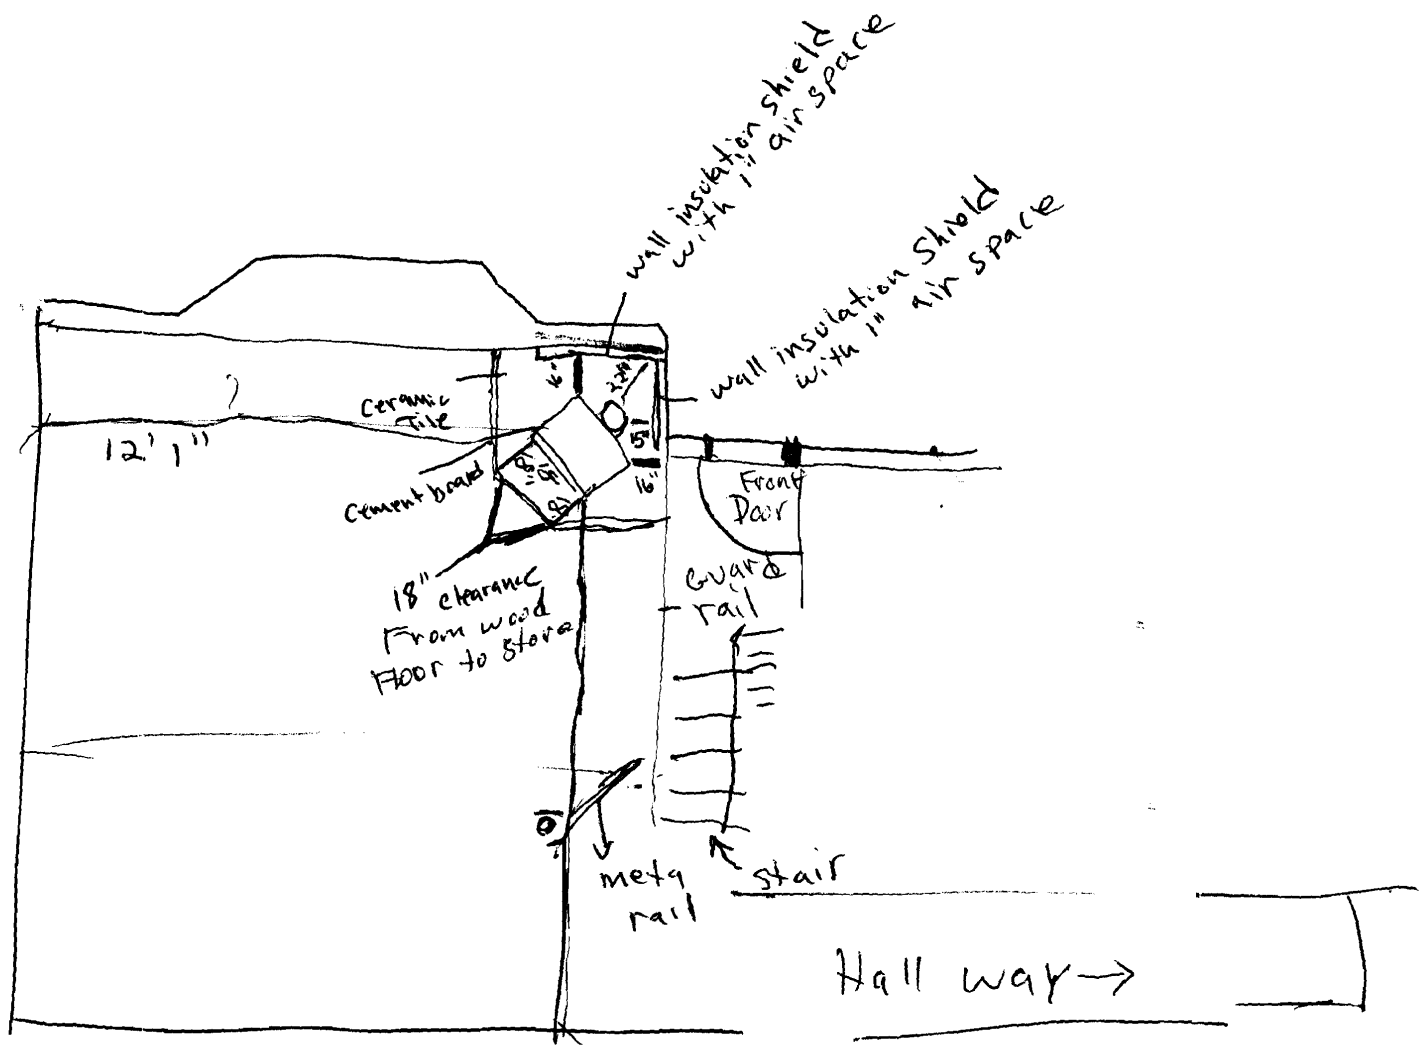 wall insulation shield
with 1" air space
wall insulation Shield
with 1" air space
Ceramic
Tile
16"
22"
15"
16"
12' 1"
cement board
18"
18"
Front
Door
18" clearance
From wood
Floor to stove
Guard
rail
meta
rail
stair
Hall way →